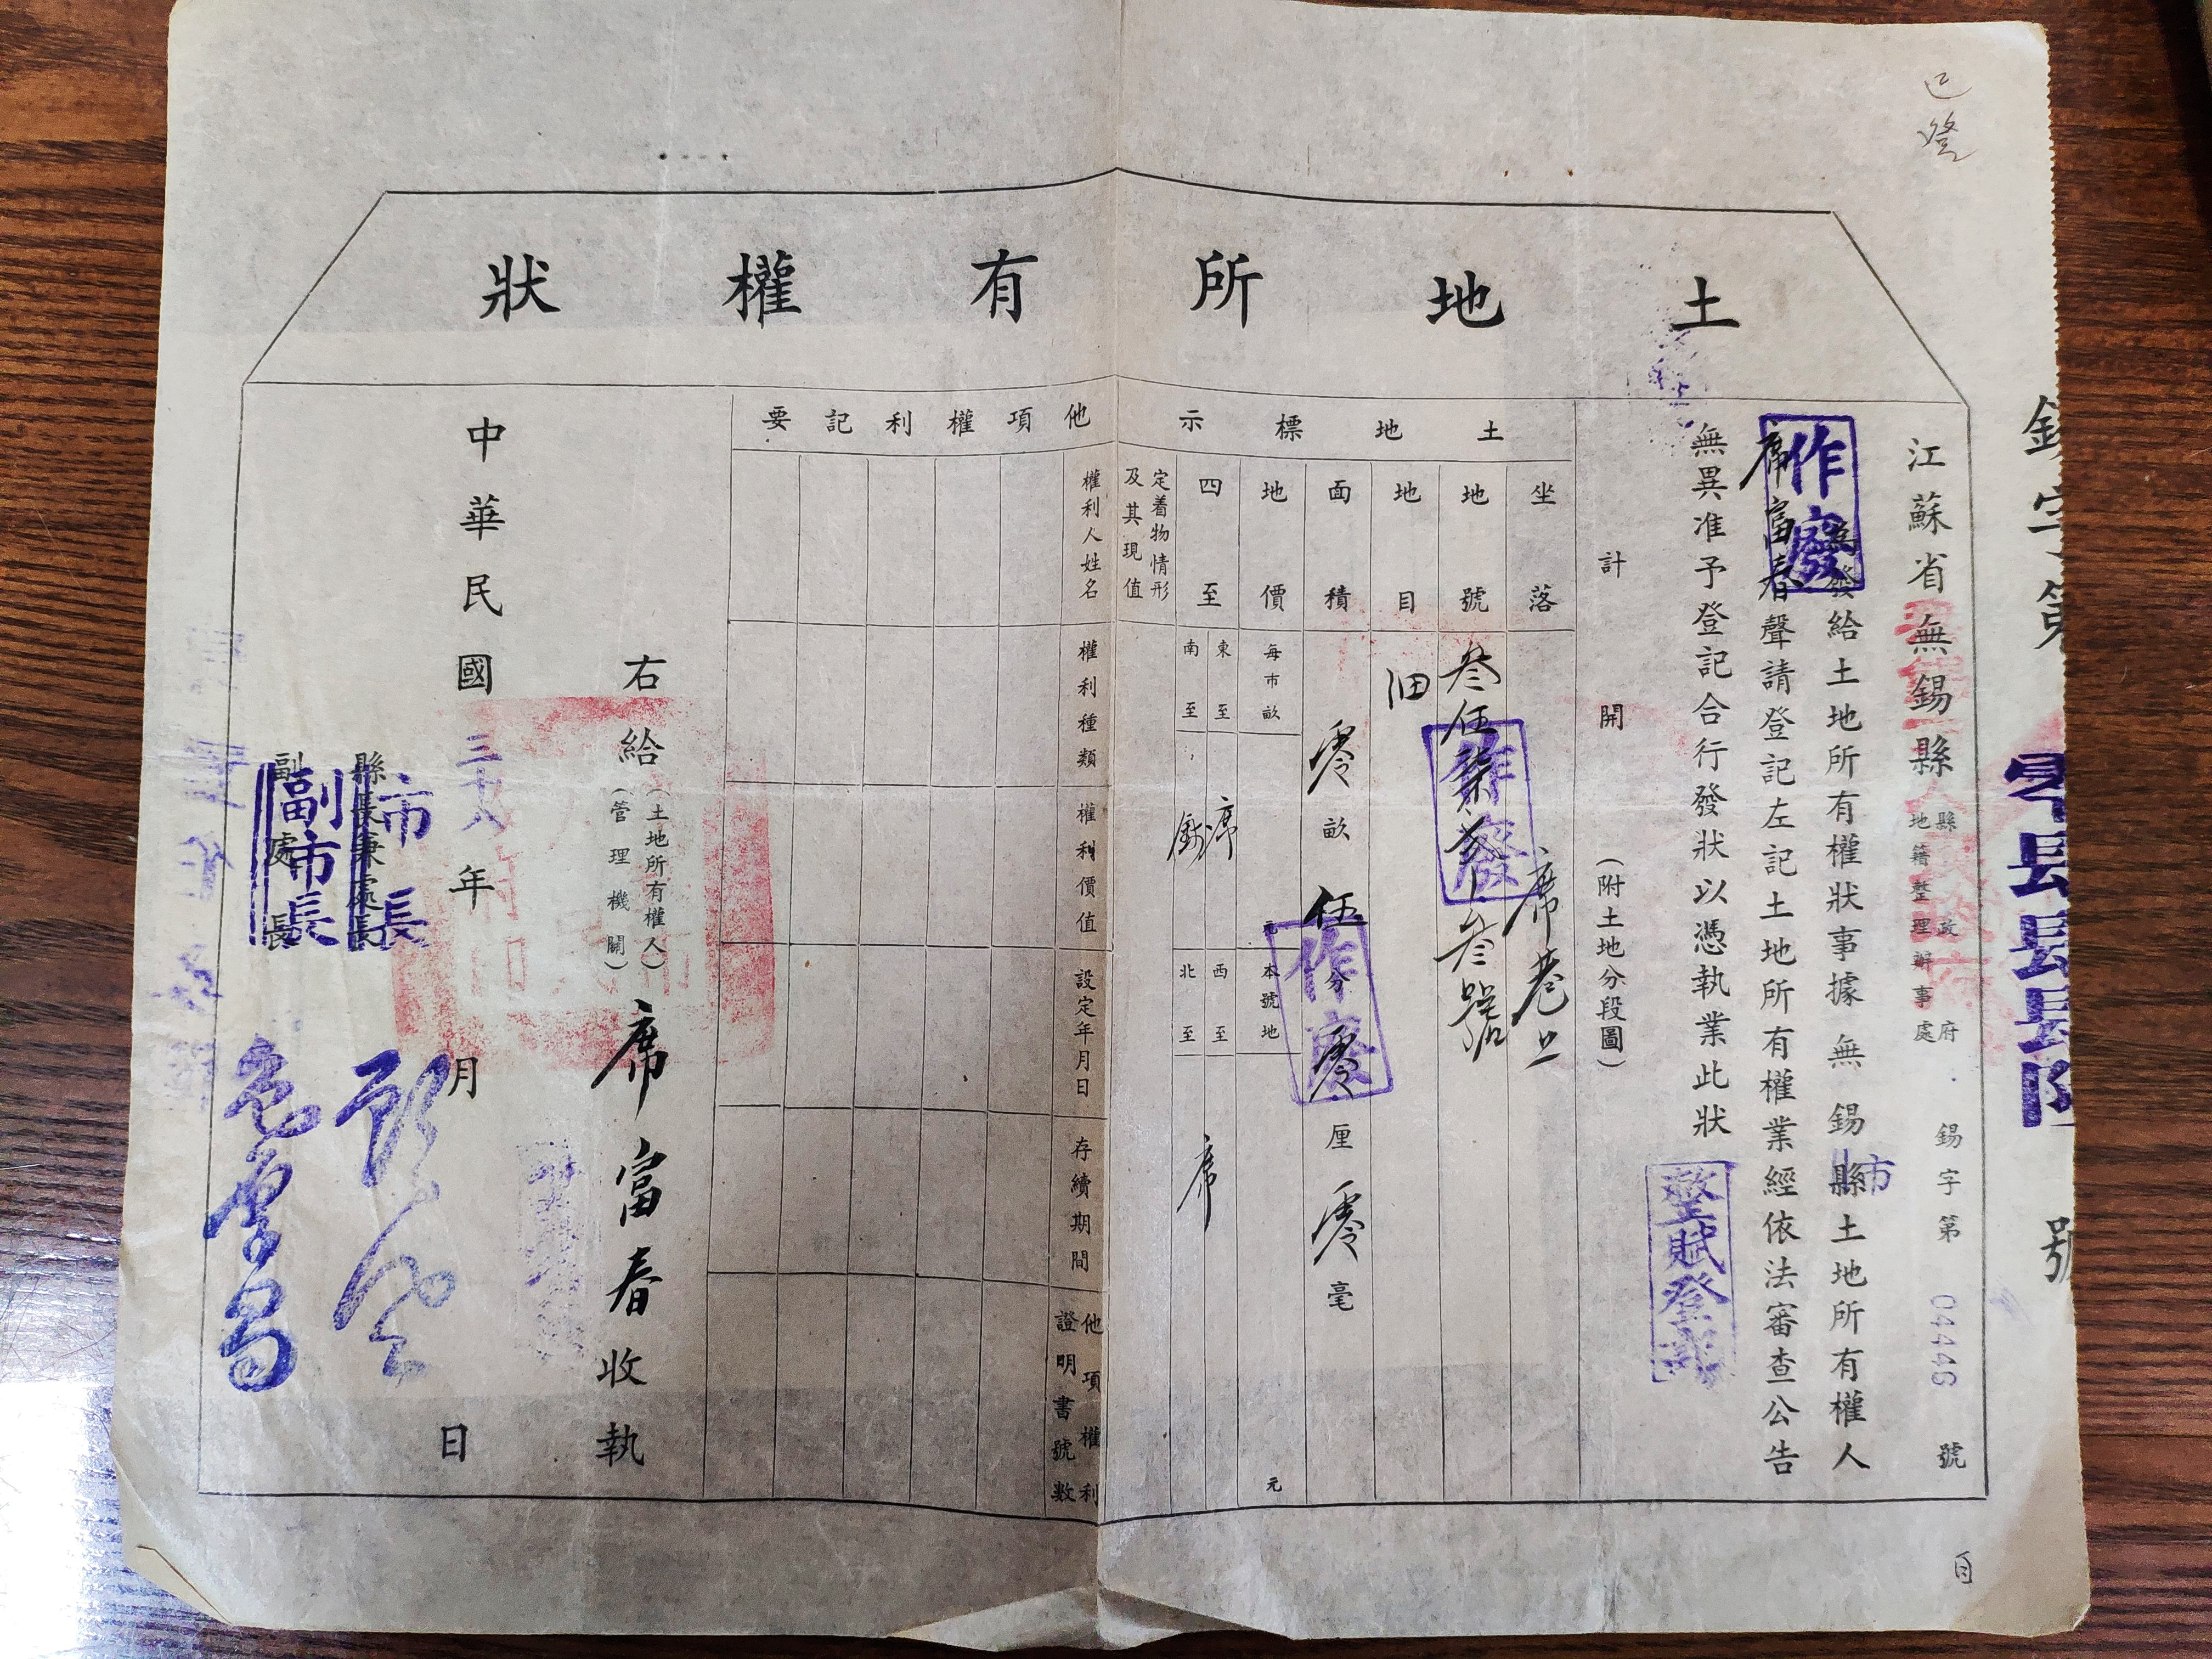 已登
土地所有權狀
江蘇省無錫縣
縣政府
地籍整理辦事處
錫字第04446號
為發給土地所有權狀事據無錫縣土地所有權人
市
席富春聲請登記左記土地所有權業經依法審查公告
無異准予登記合行發狀以憑執業此狀
作廢
整賦登記
計開(附土地分段圖)
土地標示
坐落
席巷上
地號
作廢
地目
田
面積
零畝伍分零厘零毫
作廢
地價
每市畝
元
本號地
元
四至
東至
席
西至
席
南至
北至
定着物情形及其現值
他項權利記要
權利人姓名
權利種類
權利價值
設定年月日
存續期間
他項權利證明書號數
右給
(土地所有權人)
(管理機關)
席富春收執
中華民國三十八年月日
縣長兼處長
市長
副處長
副市長
錫字第
號